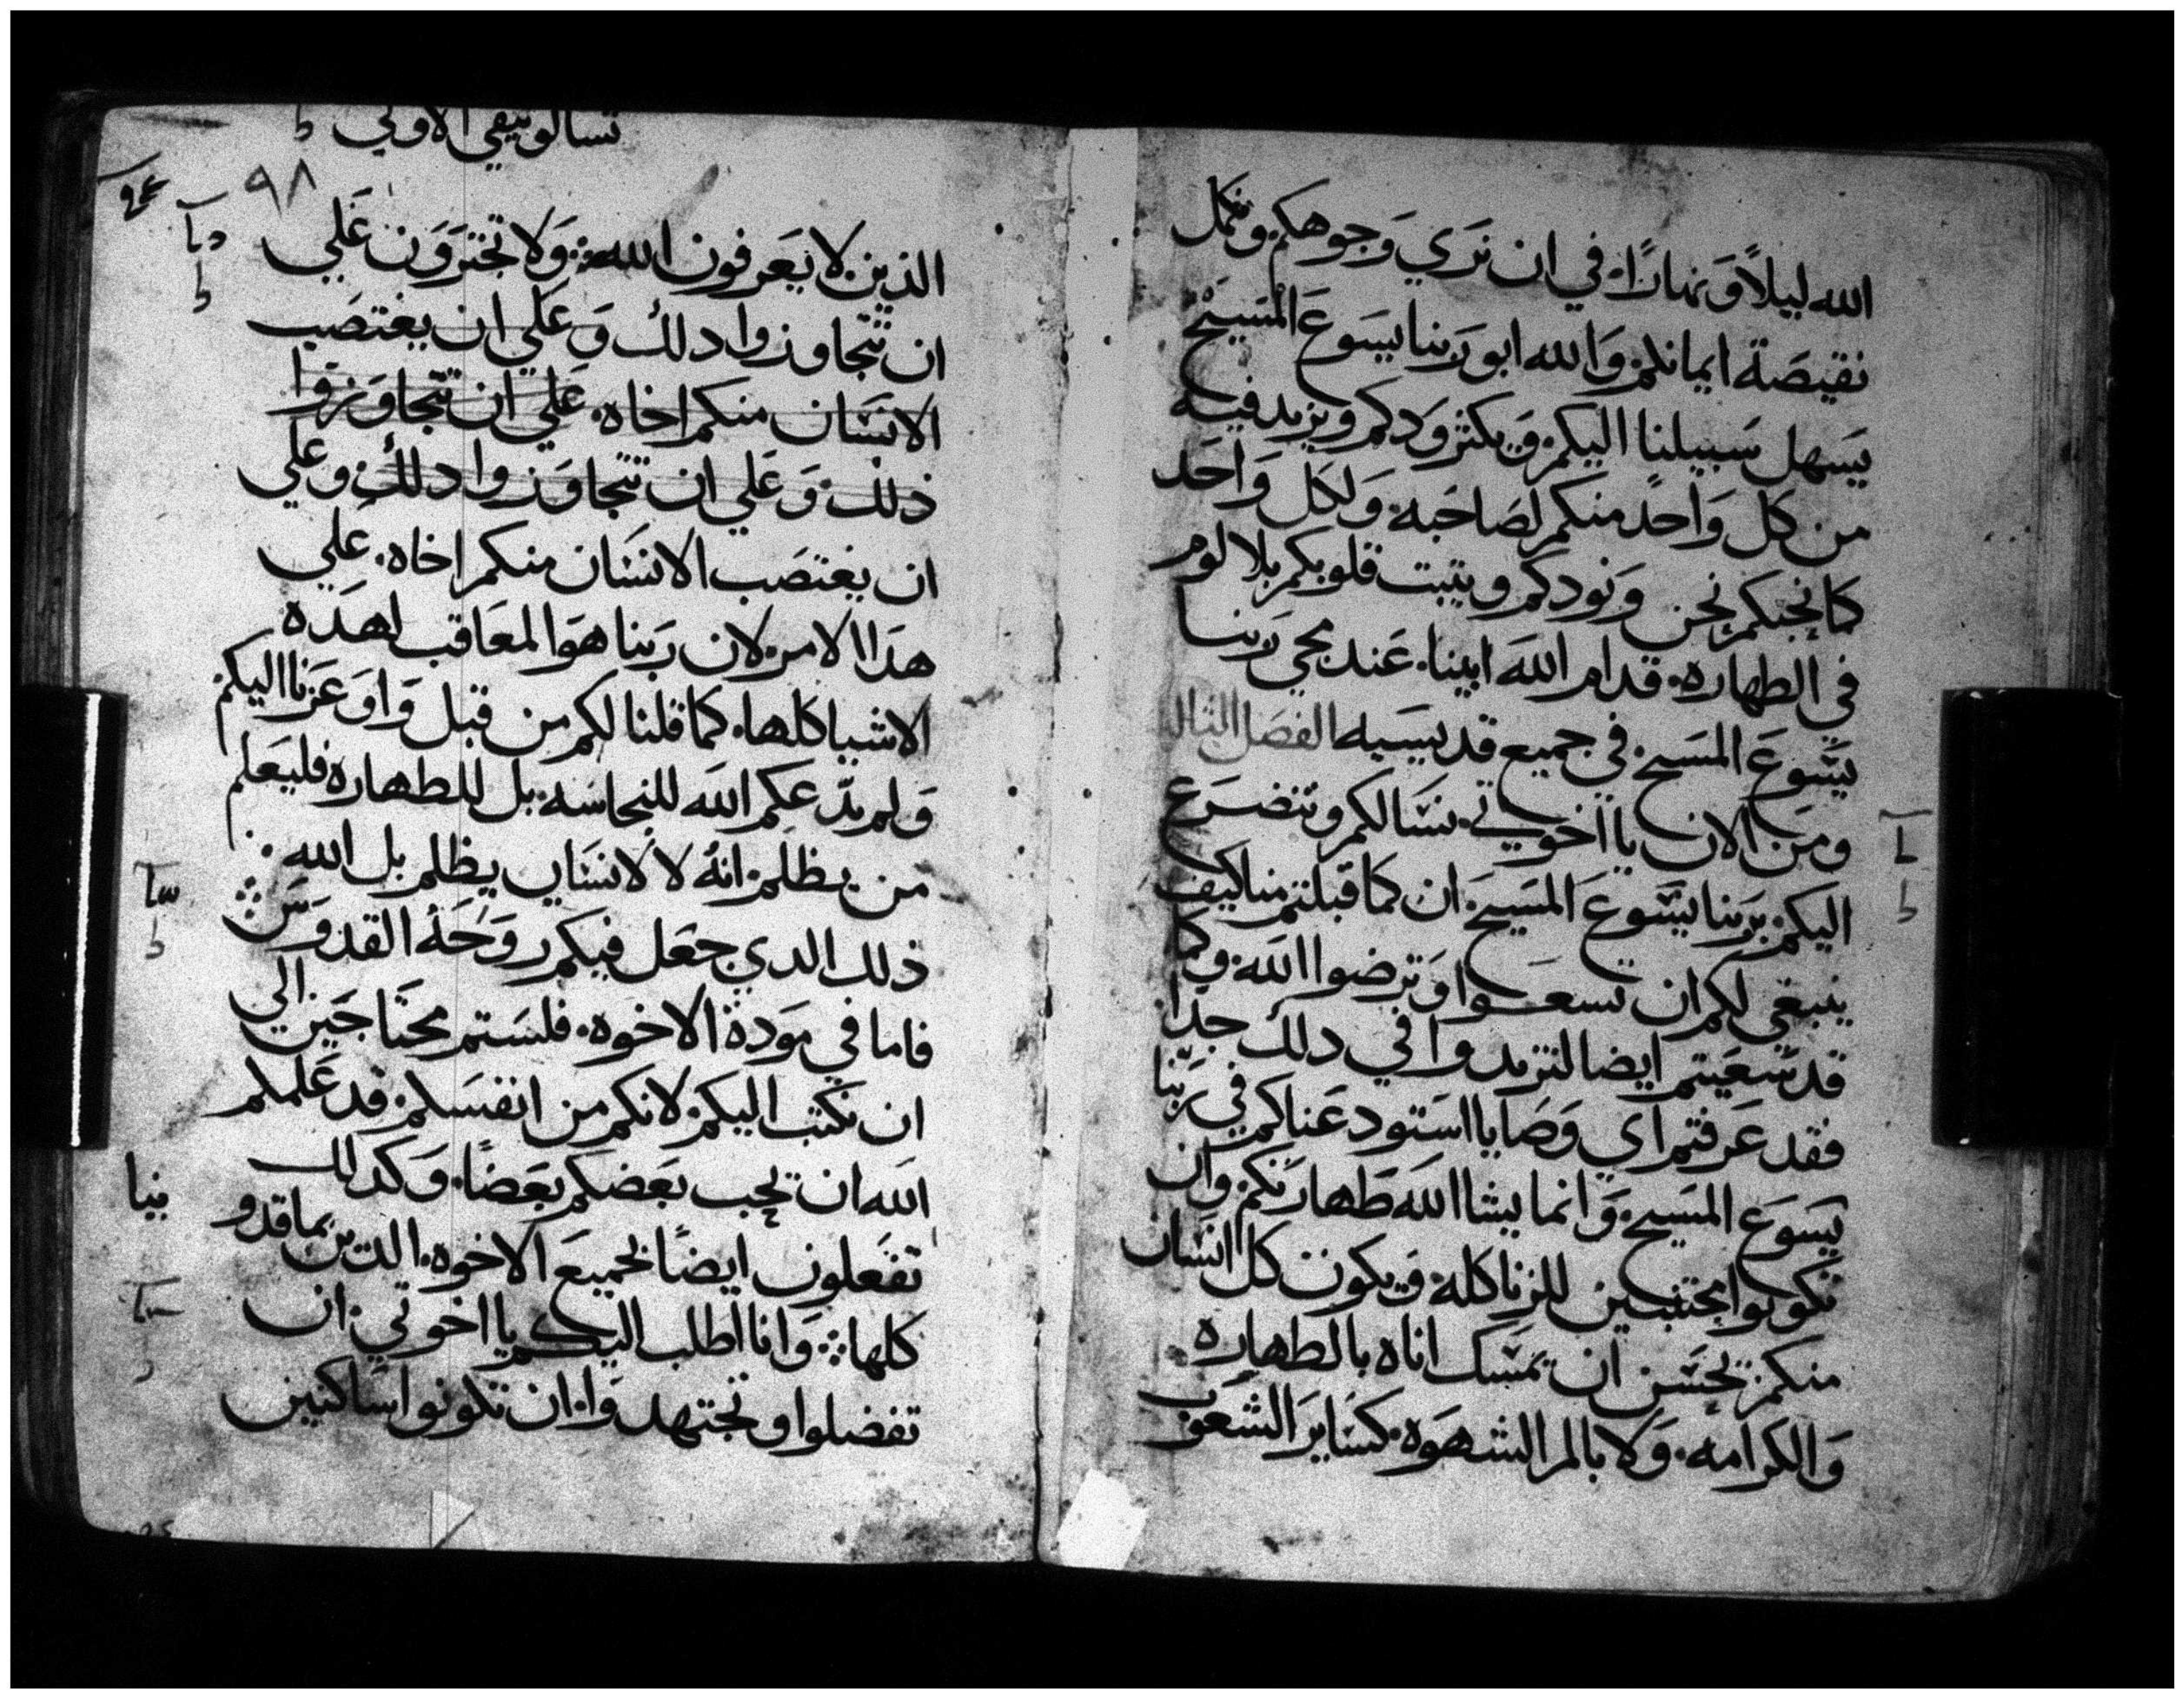 الله ليلاً وَنهارًا. في ان نرَي وَجوهكم ونكمل
نقيصَة ايمانكم. وَالله ابو رَبنا يسَوعَ المسَيحْ
يسَهل سَبيلنا اليكم. وَيكثر وَدكم ويزيد فيه
من كل وَاحدٍ منكم لصَاحَبه. وَلكل وَاحَد
كما نحبكم نحن وَنودكم ويثبت قلوبكم بلا لوم
في الطهاره. قدام اللهَ ابينا. عَند مجي رَبنا
يسَوعَ المسَيح. في جميع قديسَيه الفصَل الثالث
ومَن الان يا اخوتي. نسَالكم ونتضرَع
اليكم. برَبنا يسَوعَ المسَيحَ. ان كما قبلتم منا كيف
ينبغي لكم ان تسعَوا وَترضوا اللهَ. وَكما
قد سَعَيتم ايضا لتزيدوا في دلك جدًا
فقد عَرفتم اي وَصَايا استودعَناكم في رَبنا
يسَوعَ المسَيح. وَانما يشا اللهَ طَهارَتكم. وَان
تكونوا مجتنبَين للزنا كله. وَيكون كل انسَان
منكم. يحسَن ان يمسَك اناه بالطهاره
وَالكرَامه. وَلا بالم الشهوَه. كسَاير الشعَوب
تسالونيقي الاولي ط
٩٨
الذين لا يعَرفون الله. وَلا تجترَوَن عَلي
ان تتجاوزوا دلك وَعَلي ان يغتصَب
الانسَان منكم اخاه. عَلي ان تتجاوَزوا
ذلك. وَعَلي ان تتجاوَزوا دلك وعَلي
ان يغتصَب الانسَان منكم اخاه. عَلي
هدَا الامر. لان رَبنا هوَ المعَاقب لهدَه
الاشيا كلها. كما قلنا لكم من قبل وَاوعَزنا اليكم
وَلم يدَعكم اللهَ للنجاسَه. بل للطهاره فليعَلم
من يظلم. انهُ لا لانسَان يظلم بل الله
ذلك الدي جعَل فيكم روَحَهُ القدوَسَ
فاما في موَدة الاخوه. فلسَتم محتاجَين الي
ان نكتب اليكم. لانكم من انفسَكم. قد عَلمكم
اللهَ ان يحب بعَضكم بعَضًا. وَكدلك
تفعَلون ايضًا بجميعَ الاخوه. الدين بماقدو
نيا
كلها وَانا اطلب اليكم يا اخوتي. ان
تفضلوا وتجتهدوَا. ان تكونوا سَاكنين